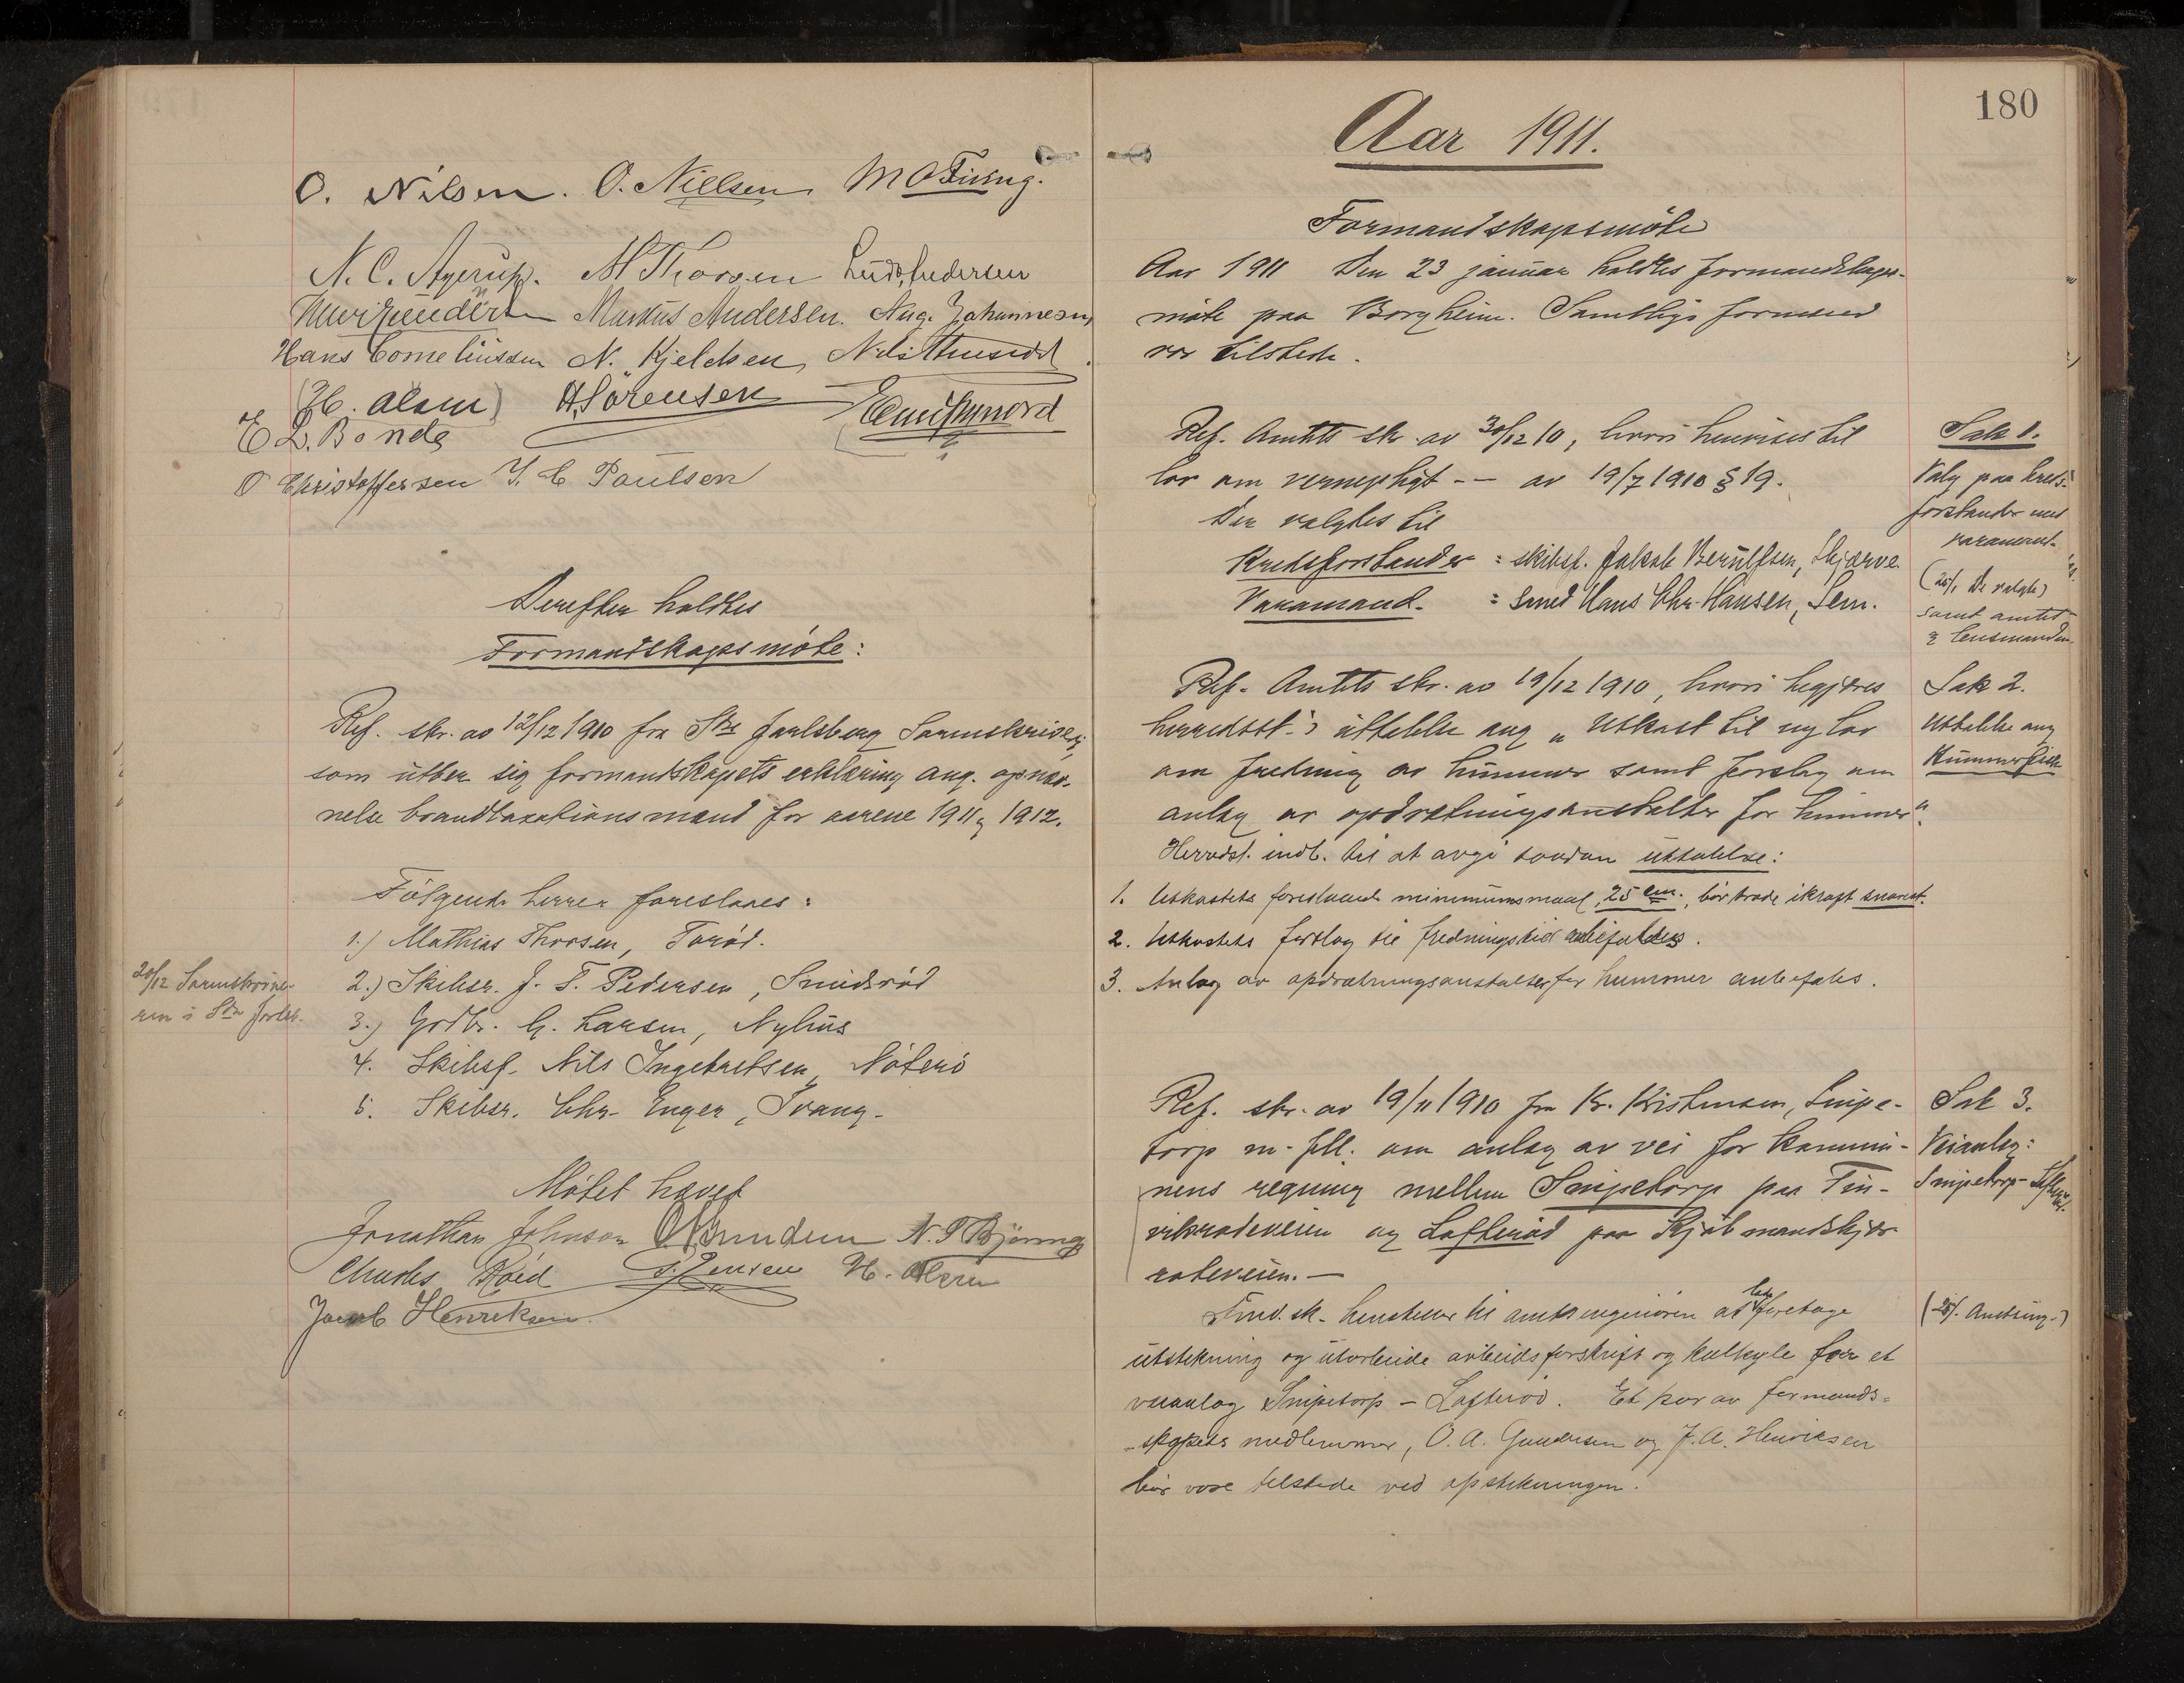 O. Nilsen. O. Nielsen M O
N. C. Agerup. M Thorsen Ludv. Andersen
Markus Andersen. Aug. Johannesen
Hans Corneliussen N. Kjeldsen
(H. Olsen) A Sörensen
E L. Bonde
O Christoffersen J. C Paulsen
Derefter holdtes
Formandskapsmöte:
Ref. skr. av 12/12 1910 fra Str Jarlsberg Sorenskriveri,
som utber sig formandskapets erklæring ang. opnæv-
nelse brandtaxationsmænd for aarene 1911 & 1912.
Følgende herrer foreslaaes:
1.) Mathias Thorsen, Torød.
2.) Skibsr. J. T. Pedersen, Smidsrød
3.) Grdbr. G. Larsen, Nyhus
4. Skibsf. Nils Ingebretsen, Nøterø
5. Skibsr. Chr. Enger, Tvang.
20/12 Sorenskrive-
ren i Str Jarlsb.
Møtet hævet
Jonathan Johnson O A Gundersen N. T Bjönnes
Charles Röed S. Jensen H. Olsen
Jacob Henriksen.
180
Aar 1911.
Formandskapsmöte
Aar 1911 Den 23 januar holdtes formandskaps-
møte paa Borgheim. Samtlige formænd
var tilstede.
Sak 1.
Ref. Amtets skr. av 30/12 10, hvori henvises til
lov om vernepligt -- av 19/7 1910 § 19.
Der valgtes til
Kredsforstander = skibsf. Jakob Berulfsen, Skjerve
Varamand. = Smed Hans Chr. Hansen, Sem.
Valg paa kreds-
forstander med
varamand.
(25/1 De valgte)
samt amtet
& lensmanden
Sak 2.
Uttalelse ang
Hummerfiske
Ref. Amtets skr. av 19/12 1910, hvori begjæres
herredsst.s uttalelse ang „Utkast til ny lov
om fredning av hummer samt forslag om
anlæg av opdrætningsanstalter for hummer“.
Herredst. indb. til at avgi saadan uttalelse:
1. Utkastets foreslaaede minimumsmaal, 25 cm., bör træde ikraft snarest.
2. Utkastets forslag til fredningstid anbefales.
3. Anlæg av opdrætningsanstalter for hummer anbefales.
Sak 3.
Veianlæg:
Snipetorp-
Ref. skr. av 19/11 1910 fra Kr. Kristensen, Snipe-
torp m. fll. om anlæg av vei for kommu-
nens regning mellem Snipetorp paa Tin-
vikrodeveien og Lofterød paa Kjøbmandskjær
rodeveien. —
Fmd.sk. henstiller til amtsingeniøren at late foretage
utstikning og utarbeide arbeidsforskrift og kalkyle for et
veianlæg Snipetorp - Lofterød. Et par av formands-
skapets medlemmer, O. A. Gundersen og J. A. Henriksen
bør være tilstede ved opstikningen.
(25/1 Amtsing.)